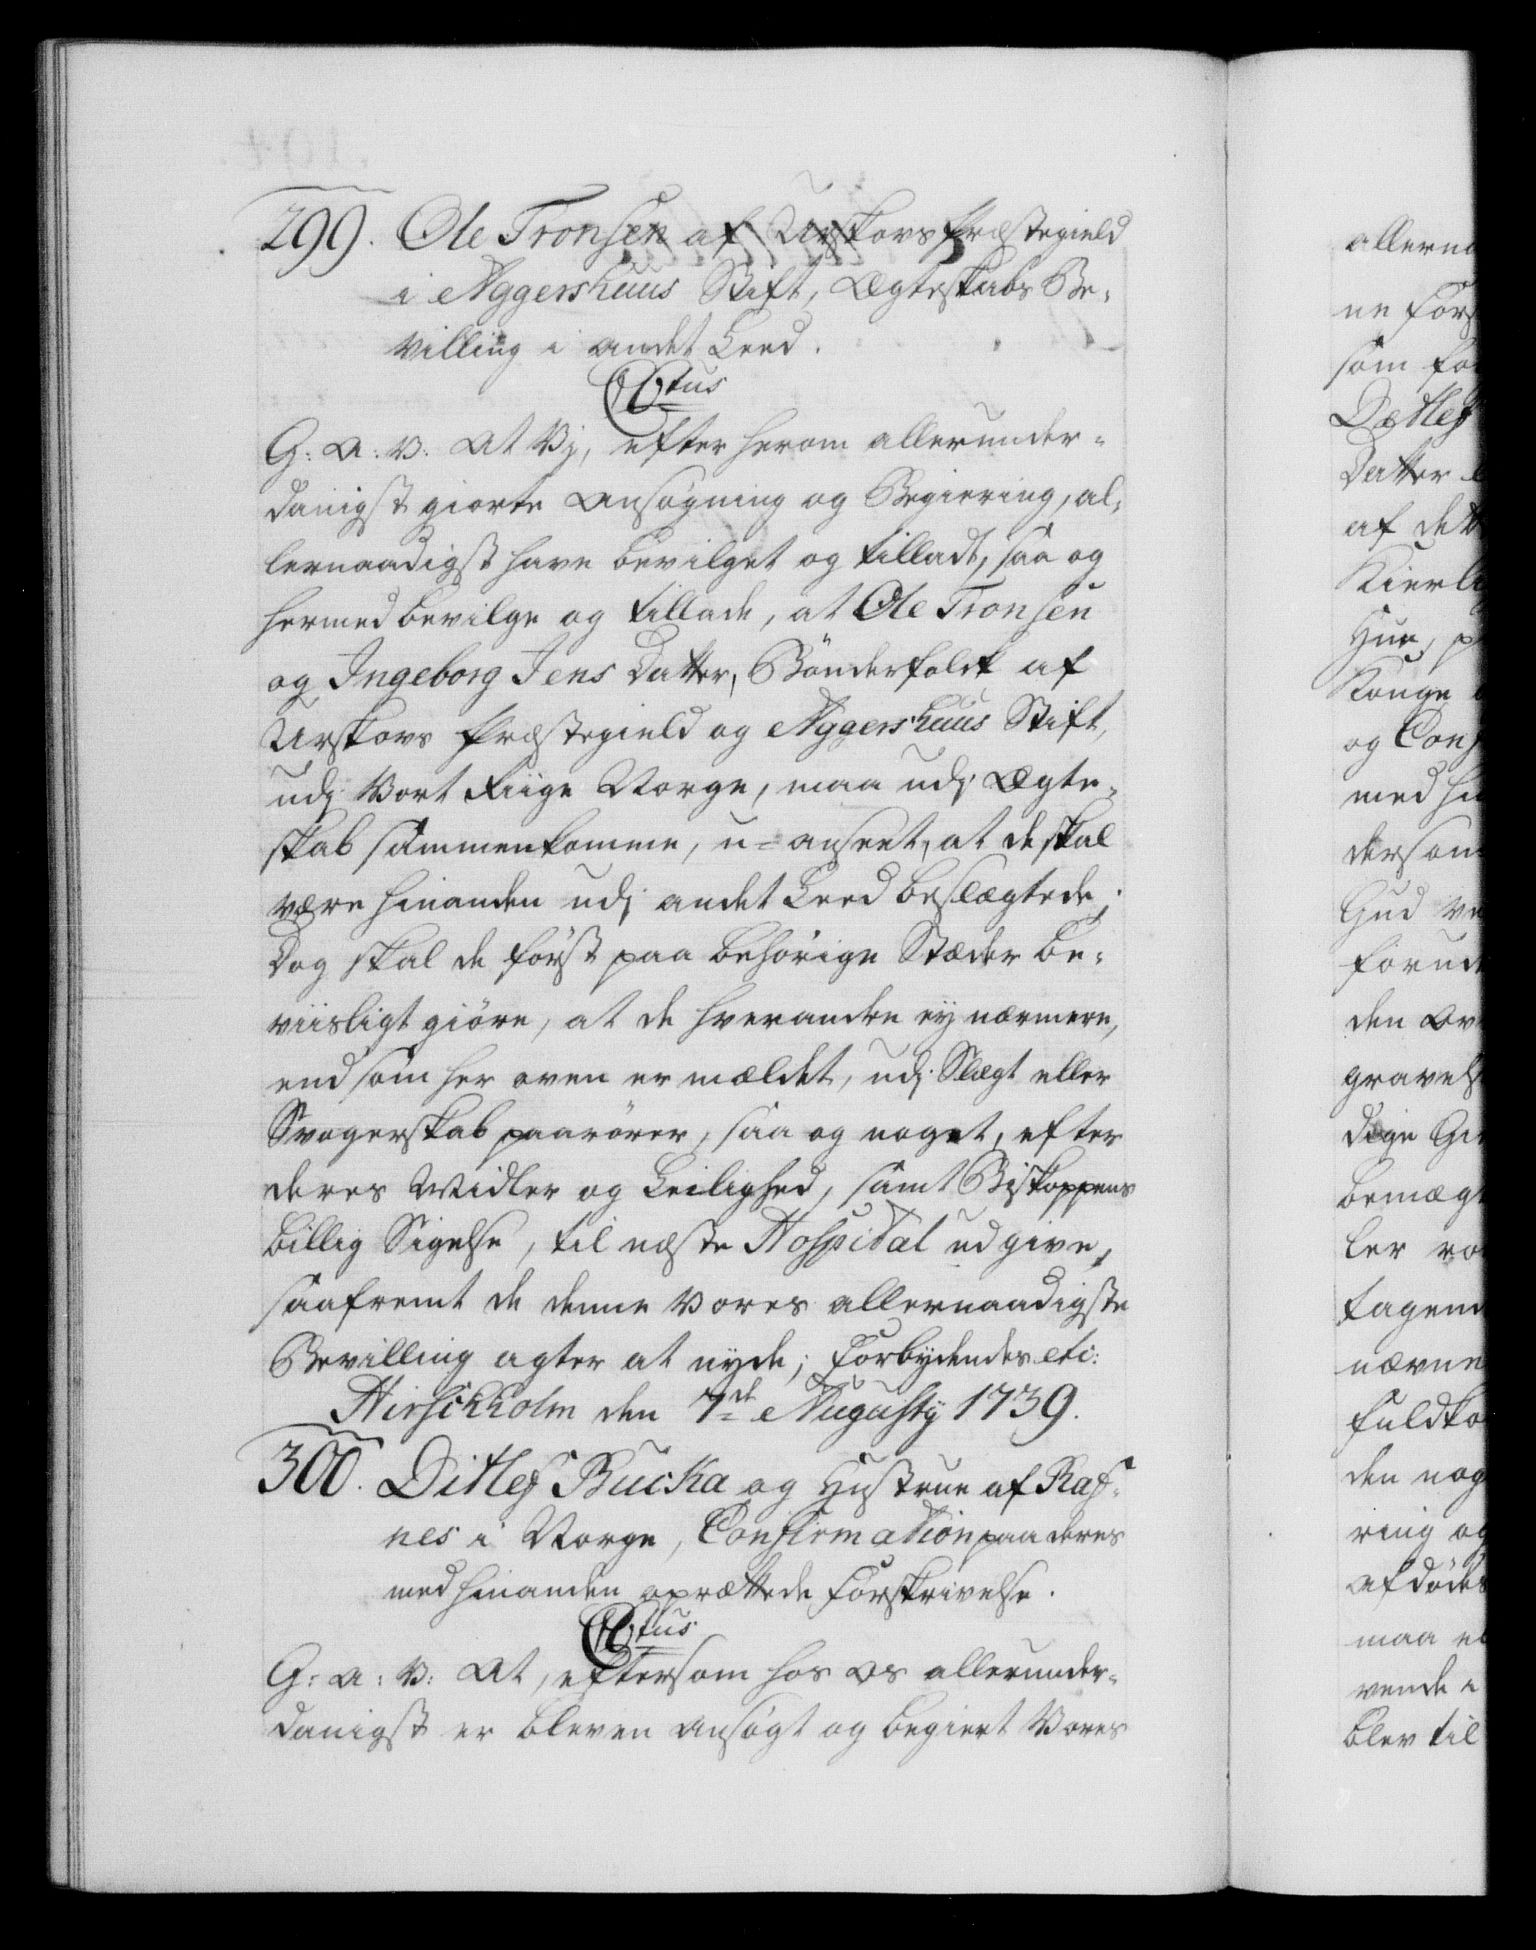 299. Ole Tronsen af Urskovs Præstegield
i Aggershuus Stift, Ægteskabs Be-
villing i andet Leed.
C6tus
G: A: V: At Vj, efter herom allerunder-
danigst giorte Ansøgning og Begiering, al-
lernaadigst have bevilget og tilladt, saa og
hermed bevilge og tillade, at Ole Tronsen
og Ingeborg Jens Datter, Bønderfolk af
Urskovs Præstegield og Aggershuus Stift,
udj Vort Riige Norge, maa udj Ægte-
skab sammenkomme, u-anseet, at de skal
være hinanden udj andet Leed beslægtede;
Dog skal de først paa behørige Stæder be-
viisligt giøre, at de hverandre ey nærmere,
end som her oven er mældet, udj Slægt eller
Svogerskab paarører, saa og noget, efter
deres Midler og Leilighed, samt Biskoppens
billig Sigelse, til næste Hospital udgive,
saafremt de denne Vores allernaadigste
Bevilling agter at nyde; Forbydendes etc:
Hirschholm den 7de Augusty 1739.
300. Ditlef Bucka og Hustrue af Raf-
nes i Norge, Confirmation paa deres
med hinanden oprættede Forskrivelse.
C6tus
G: A: V: At, eftersom hos Os allerunder-
danigst er bleven ansøgt og begiert Vores
allerna
ne For
som for
Ditlef
Datter
af det
Kierli
Hun, p
Konge
og Conf
med hi
dersom
Gud
forud
den
gravels
dige
bemægt
ler
tagen
nævne
fuldko
den nog
ring og
afdødes
maa
vende
blev til